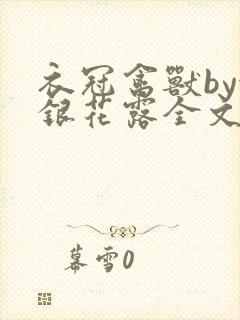 衣冠禽獸by
銀花露全文
幕雪0